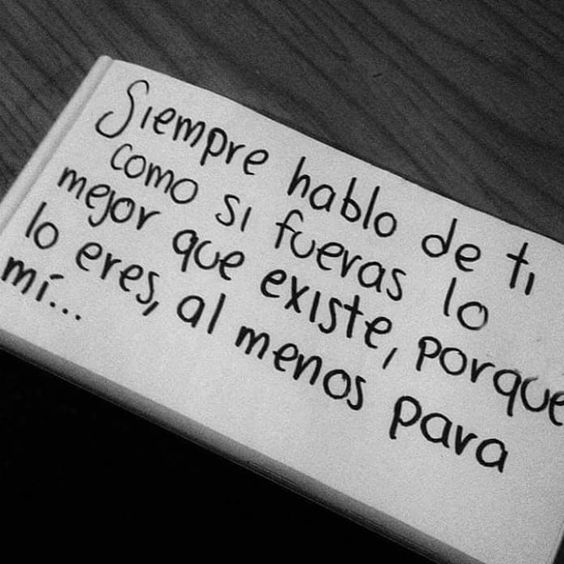 Siempre hablo de ti
como si fueras lo
mejor que existe, porque
lo eres, al menos para
mí...